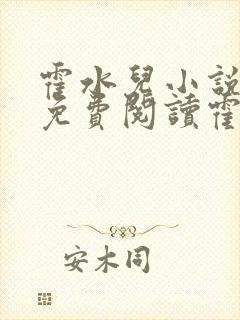 霍水兒小說
免費閱讀霍
安木同